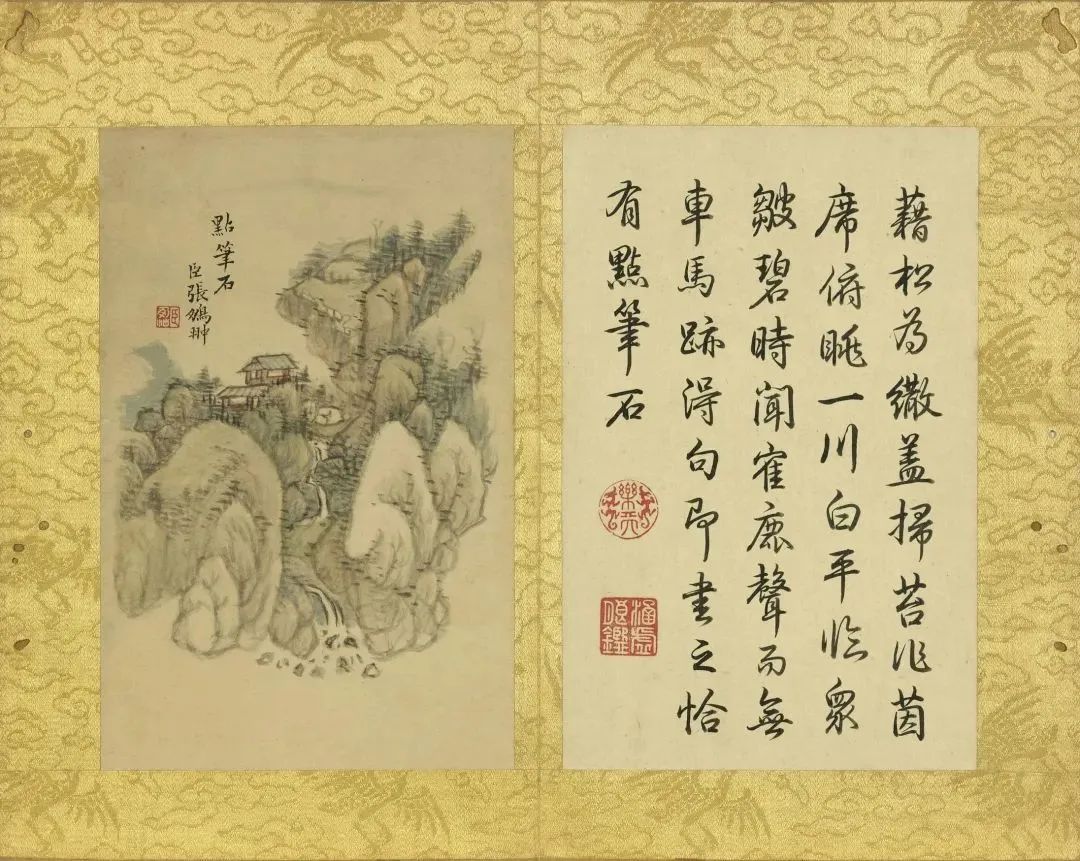 藉松為繖蓋掃苔作茵
席俯眺一川白平臨眾
皺碧時聞寉鹿聲而無
車馬跡得句即書之恰
有點筆石
樂天
涵虛朗鑑
點筆石
臣張鵬翀